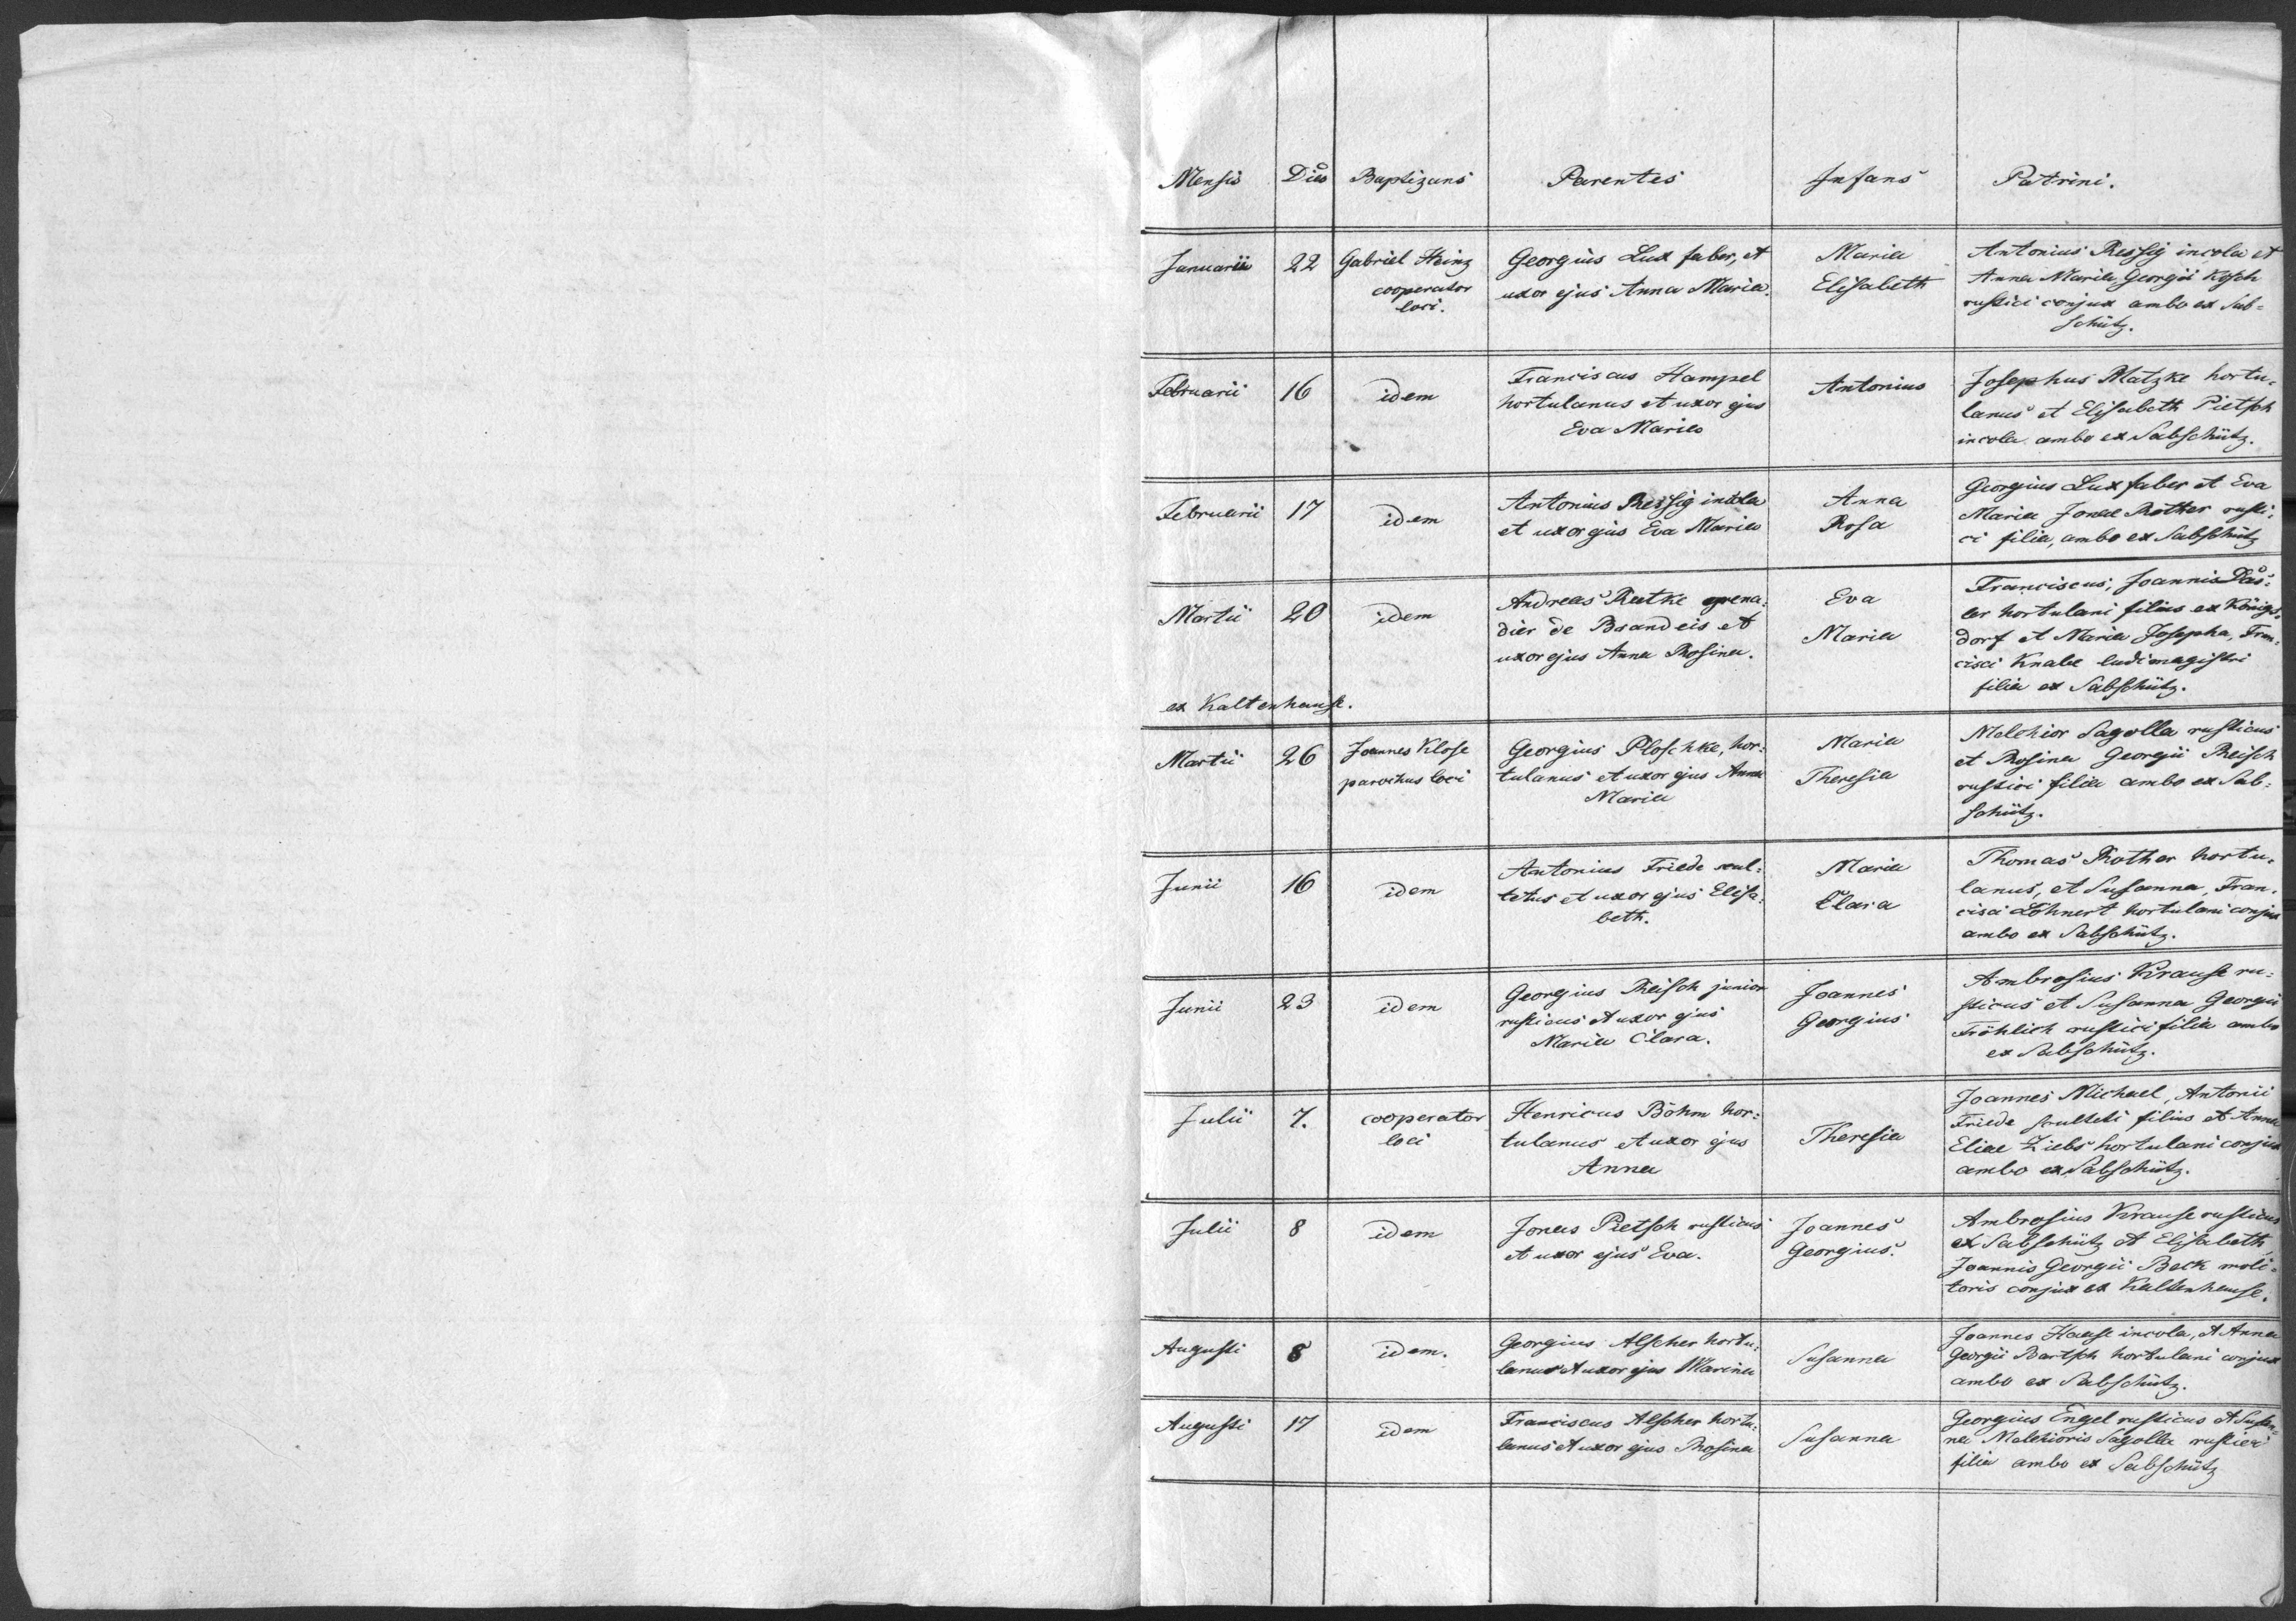 Mensis Dies Baptizans Parentes Infans Patrini.
Januarii 22 Gabriel Heinz Georgius Lux faber, et Maria Antonius Ressig incola et
cooperator uxor ejus Anna Maria. Elisabeth Anna Maria, Georgii Kosch
loci. rustici conjux ambo ex Sab=
schütz.
Februarii 16 idem Franciscus Hampel Antonius Josephus Matzke hortu=
hortulanus et uxor ejus lanus et Elisabeth Pietsch
Eva Maria incola ambo ex Sabschütz.
Februarii 17 idem Antonius Ressig incola Anna Georgius Lux faber et Eva
et uxor ejus Eva Maria Rosa Maria Jonae Rother rusti=
ci filia, ambo ex Sabschütz
Martii 20 idem Andreas Rutke grena= Eva Franciscus, Joannis
dier de Brandeis et Maria ler hortulani filius ex Königs=
uxor ejus Anna Rosina. dorf et Maria Josepha, Fran=
cisci Knabe ludimagistri
ex Kaltenhause. filia ex Sabschütz.
Martii 26 Joannes Klose Georgius Ploschke, hor= Maria Melchior Sagolla rusticus
parochus loci tulanus et uxor ejus Anna Theresia et Rosina Georgii Reisch
Maria rustici filia ambo ex Sab=
schütz.
Junii 16 idem Antonius Friede scul= Maria Thomas Rother hortu=
tetus et uxor ejus Elisa= Clara lanus, et Susanna, Fran=
beth. cisci Löhnert hortulani conjux
ambo ex Sabschütz.
Junii 23 idem Georgius Reisch junior Joannes Ambrosius Krause ru=
rusticus et uxor ejus Georgius sticus et Susanna Georgii
Maria Clara. Fröhlich rustici filia ambo
ex Sabschütz.
Julii 7. cooperator Henricus Böhm hor= Theresia Joannes Michael, Antonii
loci tulanus et uxor ejus Friede sculteti filius et Anna
Anna Eliae Ziebs hortulani conjux
ambo ex Sabschütz.
Julii 8 idem Jonas Pietsch rusticus Joannes Ambrosius Krause rusticus
et uxor ejus Eva. Georgius. ex Sabschütz et Elisabeth,
Joannis Georgii Beck moli=
toris conjux ex Kaltenhause.
Augusti 8 idem. Georgius Alscher hortu= Susanna Joannes Haase incola, et Anna
lanus et uxor ejus Marina Georgii Bartsch hortulani conjux
ambo ex Sabschütz.
Augusti 17 idem Franciscus Alscher hortu= Susanna Georgius Engel rusticus et Susan=
lanus et uxor ejus Rosina na Melchioris Sagolla rustici
filia ambo ex Sabschütz